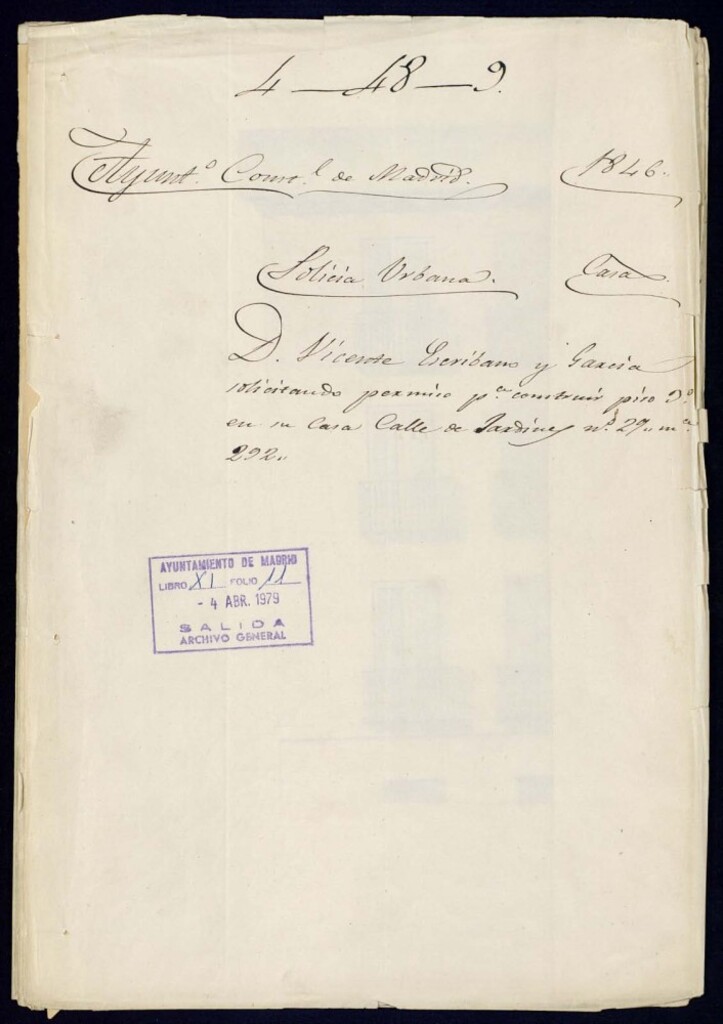 4 - 48 - 9.
Ayunt.º Const.l de Madrid. 1846.
Policia Urbana. Casa
D. Vicente Escribano y Garcia
solicitando permiso p.a construir piso 3.º
en su Casa Calle de Jardines n.º 27,, m.a
292,,
AYUNTAMIENTO DE MADRID
LIBRO XI FOLIO 11
- 4 ABR. 1979
SALIDA
ARCHIVO GENERAL